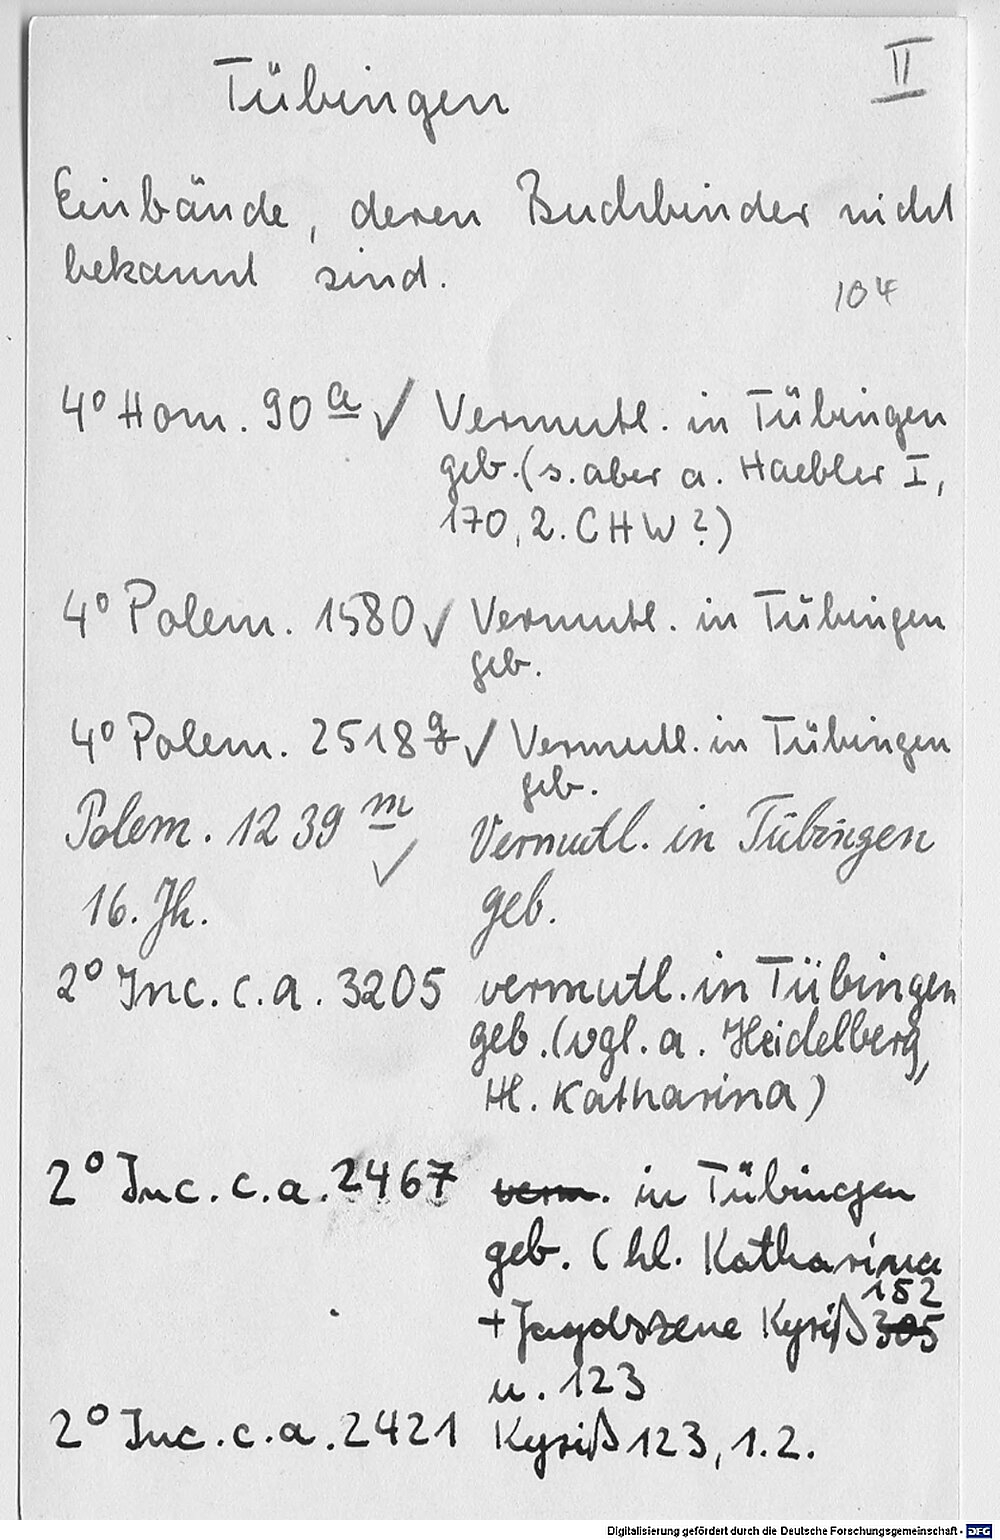 II
Tübingen
Einbände, deren Buchbinder nicht
bekannt sind.
104
4° Hom. 90 a ✓ Vermutl. in Tübingen
geb. (s. aber a. Haebler I,
170, 2. CHW ?)
4° Polem. 1580 ✓ Vermutl. in Tübingen
geb.
4° Polem. 2518 g ✓ Vermutl. in Tübingen
geb.
Polem. 1239 m ✓ Vermutl. in Tübingen
16. Jh. geb.
2° Inc. c. a. 3205 vermutl. in Tübingen
geb. (vgl. a. Heidelberg,
Hl. Katharina)
2° Inc. c. a. 2467 verm. in Tübingen
geb. (hl. Katharina
152
+ Jagdszene Kyriß 305
u. 123
2° Inc. c. a. 2421 Kyriß 123, 1.2.
Digitalisierung gefördert durch die Deutsche Forschungsgemeinschaft - DFG